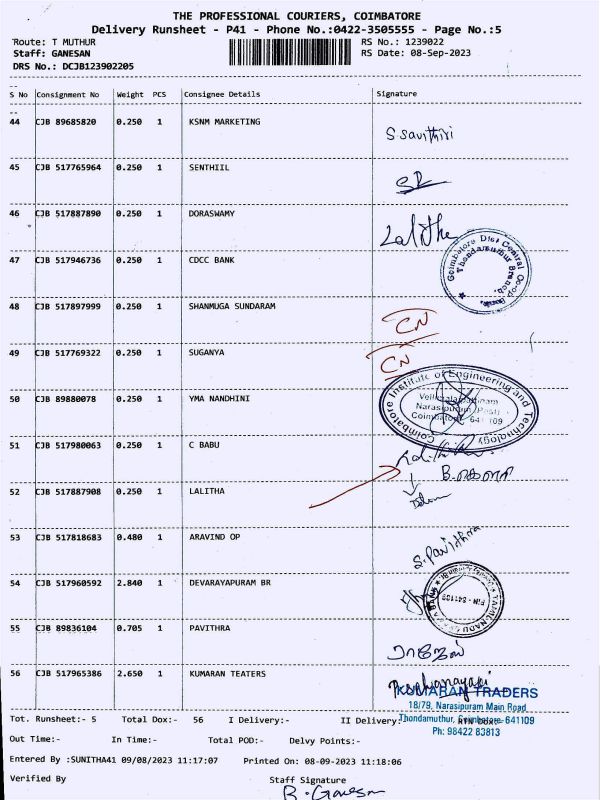 THE PROFESSIONAL COURIERS, COIMBATORE
Delivery Runsheet - P41 - Phone No.:0422-3505555 - Page No.:5
Route: T MUTHUR RS No.: 1239022
Staff: GANESAN RS Date: 08-Sep-2023
DRS No.: DCJB123902205
S No Consignment No Weight PCS Consignee Details Signature
44 CJB 89685820 0.250 1 KSNM MARKETING
S Savithiri
45 CJB 517765964 0.250 1 SENTHIIL
46 CJB 517887890 0.250 1 DORASWAMY
Lalitha
47 CJB 517946736 0.250 1 CDCC BANK
Coimbatore Dist Central Co-op
Thondamuthur Branch
48 CJB 517897999 0.250 1 SHANMUGA SUNDARAM
CN
49 CJB 517769322 0.250 1 SUGANYA
CN
50 CJB 89880078 0.250 1 YMA NANDHINI
Coimbatore Institute of Engineering and Technology
Narasipuram (Post)
Coimbatore 641 109
51 CJB 517980063 0.250 1 C BABU
52 CJB 517887908 0.250 1 LALITHA
53 CJB 517818683 0.480 1 ARAVIND OP
S. Pavithra
54 CJB 517960592 2.840 1 DEVARAYAPURAM BR
PIN - 641109
55 CJB 89836104 0.705 1 PAVITHRA
56 CJB 517965386 2.650 1 KUMARAN TEATERS
KUMARAN TRADERS
18/79, Narasipuram Main Road
Thondamuthur, Coimbatore-641109
Ph: 98422 83813
Tot. Runsheet:- 5 Total Dox:- 56 I Delivery:- II Delivery:
Out Time:- In Time:- Total POD:- Delvy Points:-
Entered By :SUNITHA41 09/08/2023 11:17:07 Printed On: 08-09-2023 11:18:06
Verified By Staff Signature
B. Ganesan